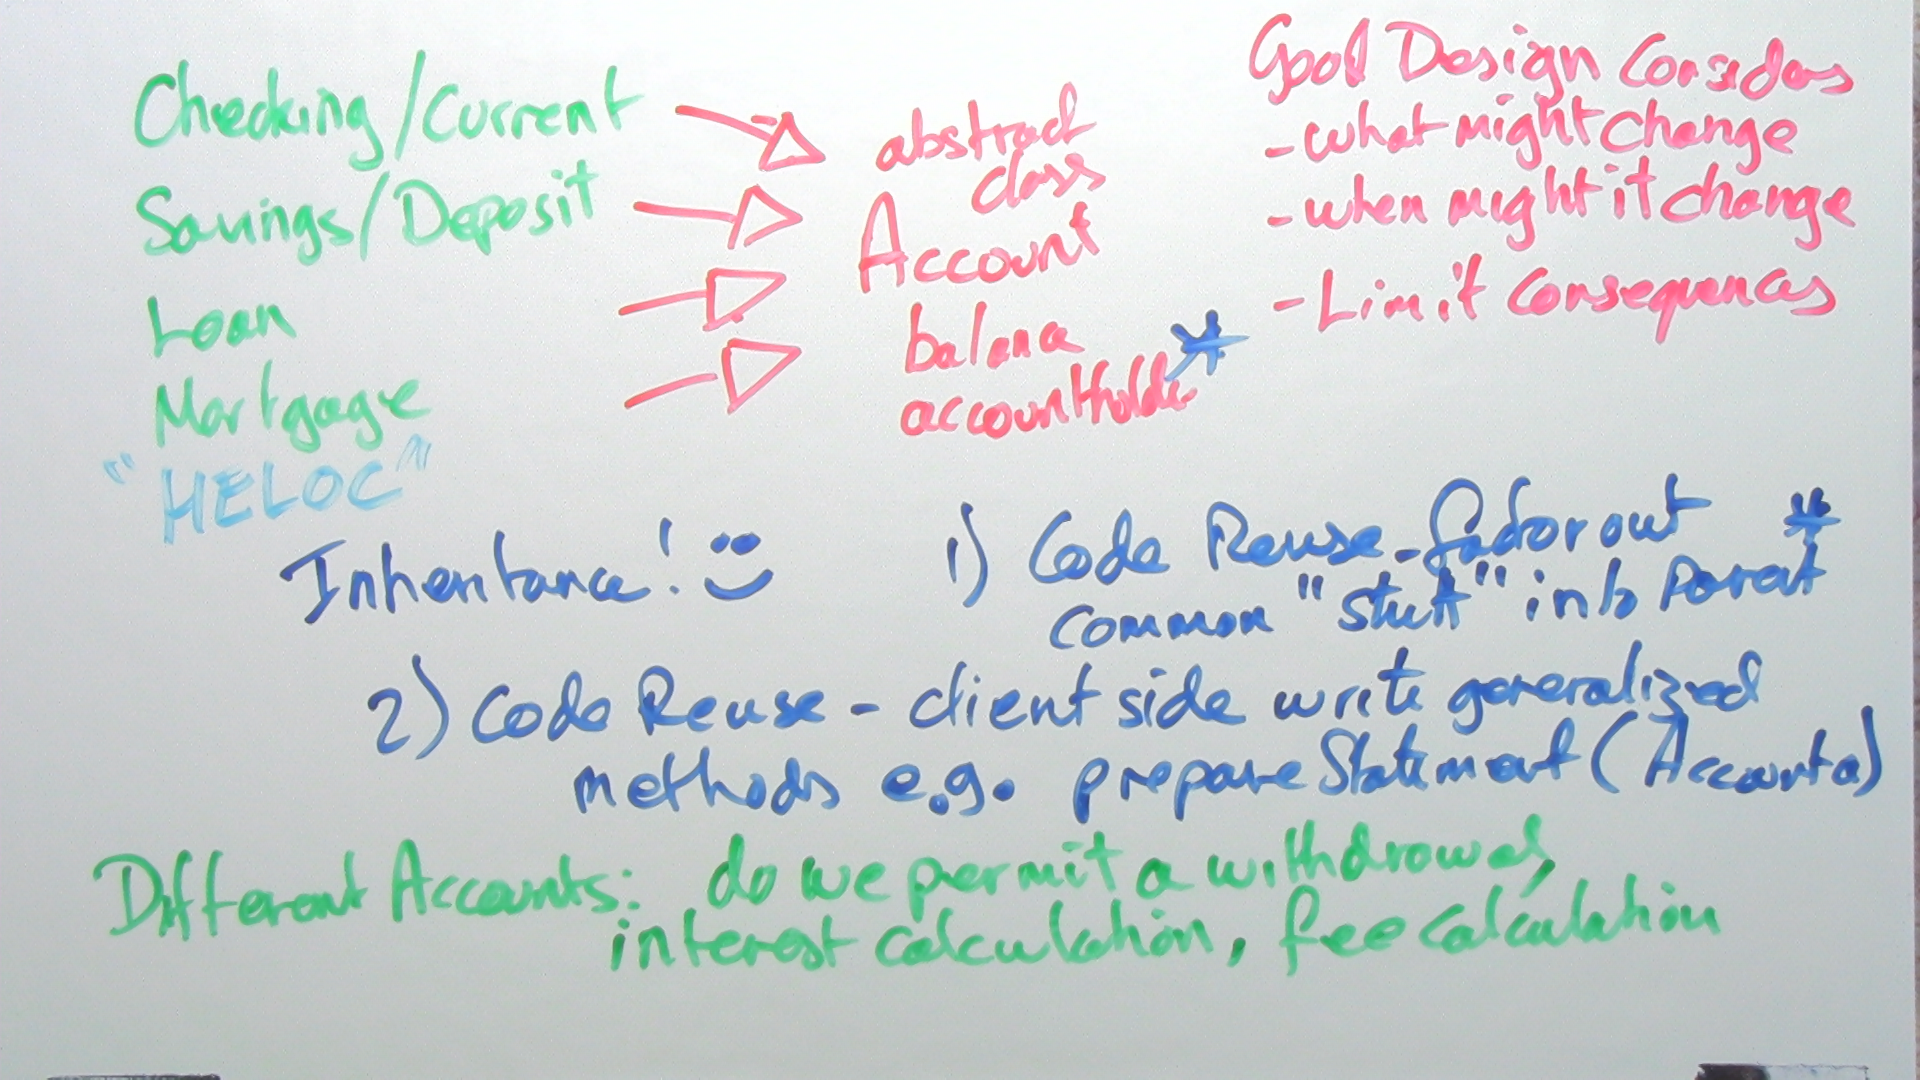 Checking/Current
Savings/Deposit
Loan
Mortgage
"HELOC"
abstract
class
Account
balance
accountHolder *
Good Design Considers
- what might change
- when might it change
- Limit consequences
Inheritance! :)
1) Code Reuse - factor out *
common "stuff" into Parent
2) Code Reuse - client side write generalized
methods e.g. prepareStatement(Account a)
Different Accounts: do we permit a withdrawal,
interest calculation, fee calculation